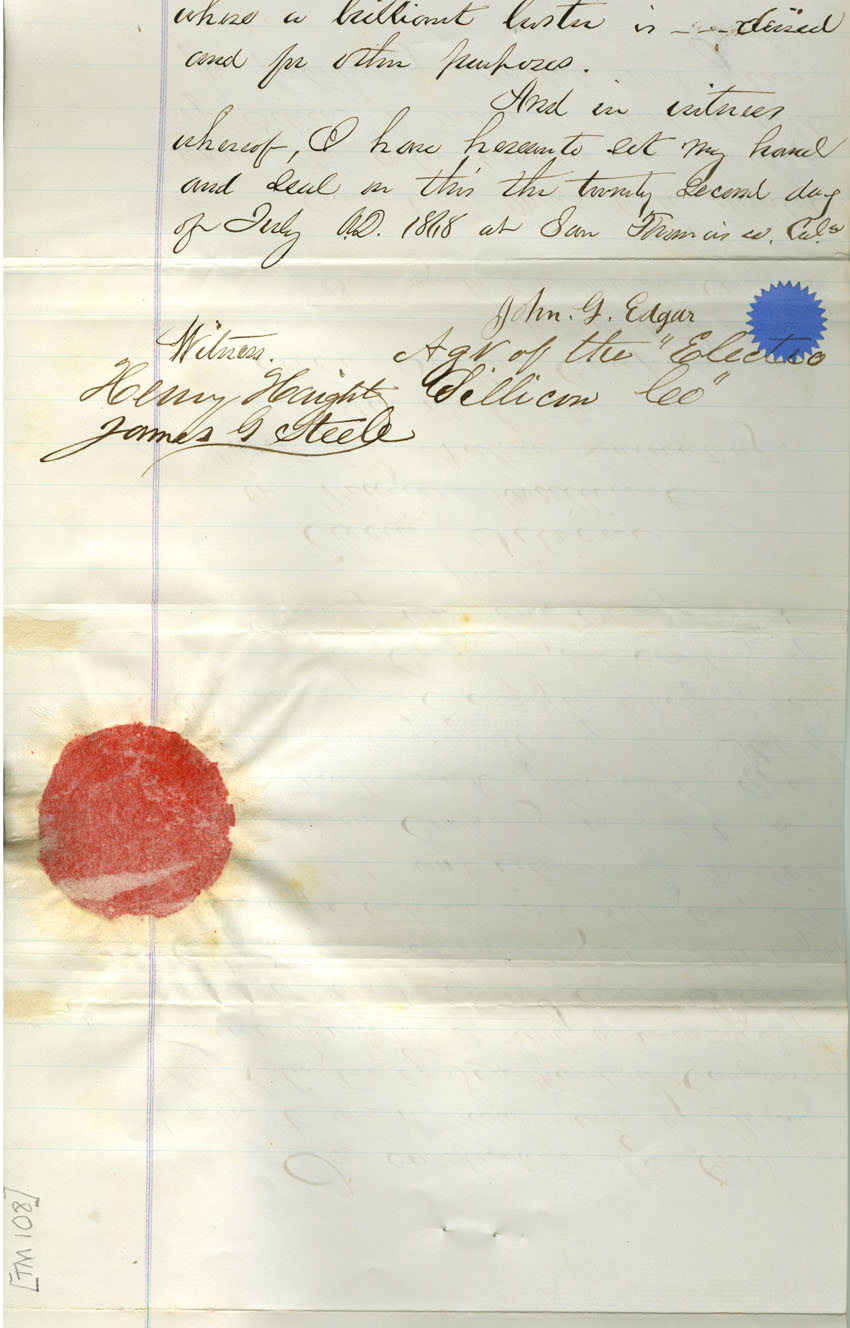 where a brilliant luster is desired
and for other purposes.
And in witness
whereof, I have hereunto set my hand
and seal on this the twenty second day
of July A.D. 1868 at San Francisco. Cal.
John. G. Edgar
Witness. Agt of the "Electro
Henry Haight Sillicon Co"
James G Steele
[TM 108]